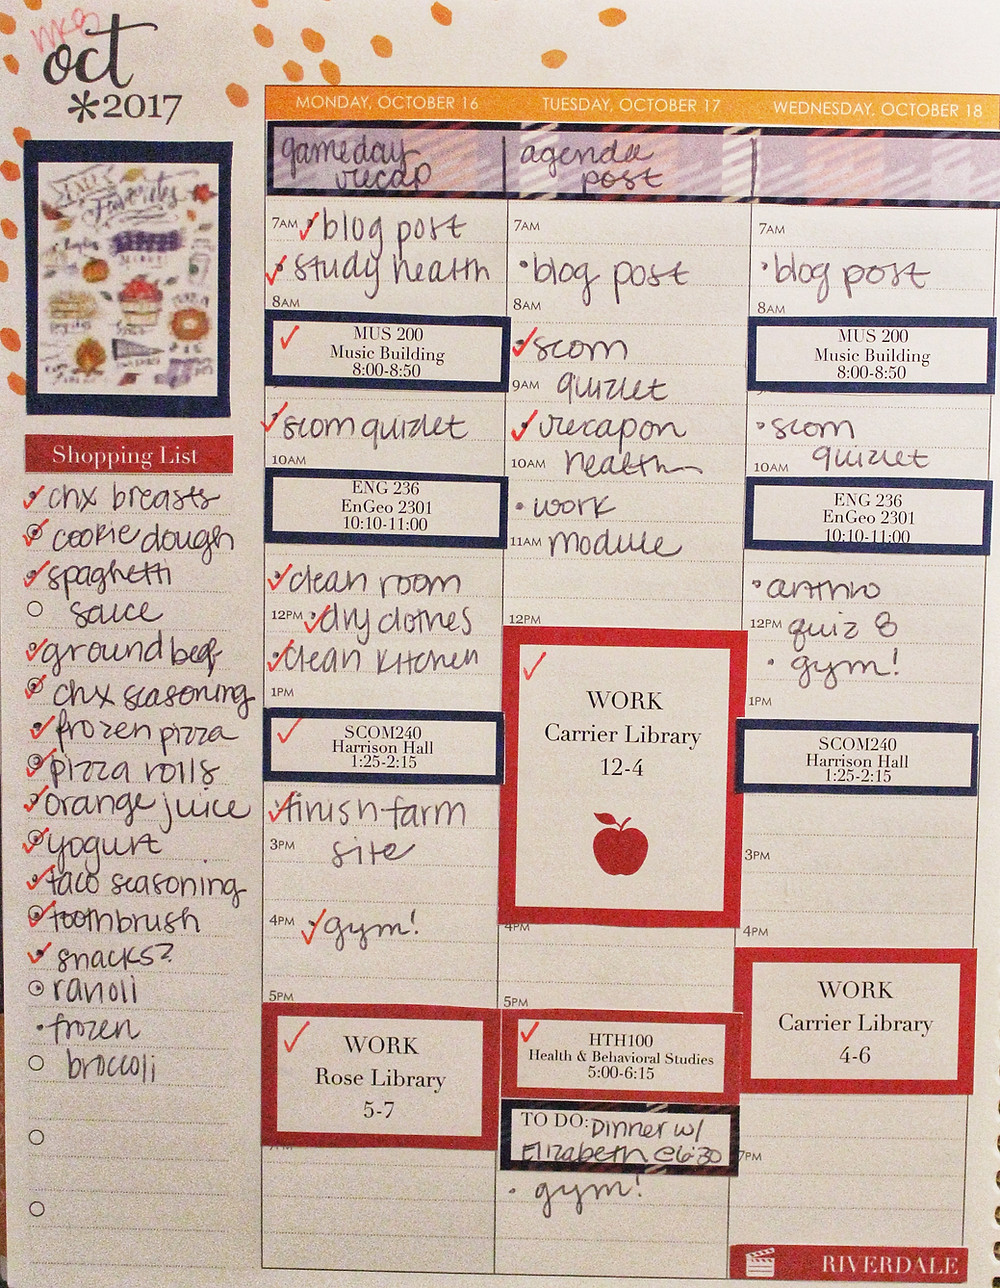 mkg
oct
*2017
Favorites
Shopping List
chx breasts
cookie dough
spaghetti
sauce
ground beef
chx seasoning
frozen pizza
pizza rolls
orange juice
yogurt
taco seasoning
toothbrush
snacks?
ranoli
frozen
broccoli
MONDAY, OCTOBER 16
gameday
recap
7AM blog post
study health
8AM
MUS 200
Music Building
8:00-8:50
scom quizlet
10AM
ENG 236
EnGeo 2301
10:10-11:00
clean room
12PM dry clothes
clean kitchen
1PM
SCOM240
Harrison Hall
1:25-2:15
finish farm
3PM site
4PM gym!
5PM
WORK
Rose Library
5-7
TUESDAY, OCTOBER 17
agenda
post
7AM
blog post
8AM
scom
9AM quizlet
recap on
10AM health
work
11AM module
12PM
WORK
Carrier Library
12-4
4PM
5PM
HTH100
Health & Behavioral Studies
5:00-6:15
TO DO: Dinner w/
Elizabeth @6:30
gym!
WEDNESDAY, OCTOBER 18
7AM
blog post
8AM
MUS 200
Music Building
8:00-8:50
scom
10AM quizlet
ENG 236
EnGeo 2301
10:10-11:00
anthro
12PM quiz 8
gym!
1PM
SCOM240
Harrison Hall
1:25-2:15
3PM
4PM
WORK
Carrier Library
4-6
7PM
RIVERDALE